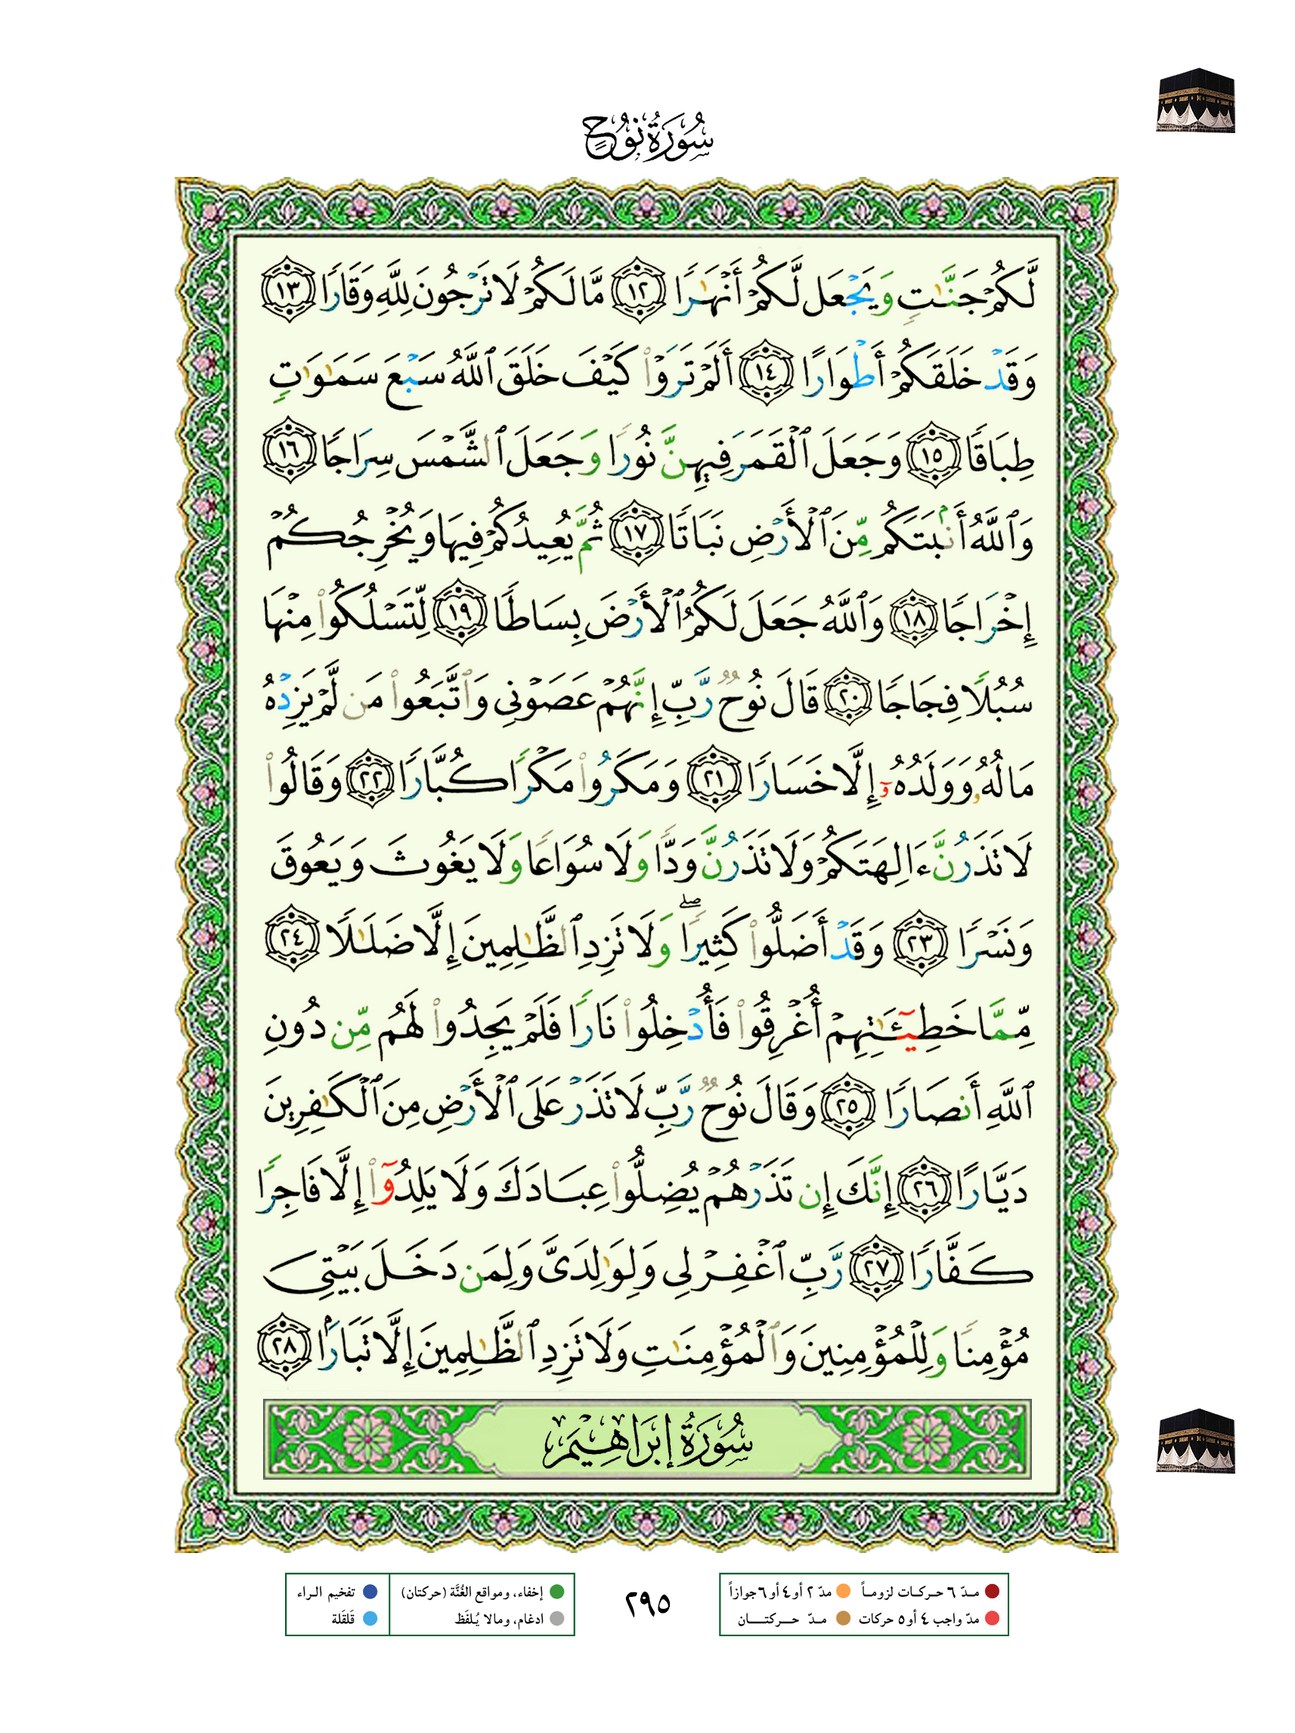 سُورَةُ نُوحٍ
لَّكُمْ جَنَّٰتٍ وَيَجْعَل لَّكُمْ أَنْهَٰرًا ١٢ مَّا لَكُمْ لَا تَرْجُونَ لِلَّهِ وَقَارًا ١٣
وَقَدْ خَلَقَكُمْ أَطْوَارًا ١٤ أَلَمْ تَرَوْا۟ كَيْفَ خَلَقَ ٱللَّهُ سَبْعَ سَمَٰوَٰتٍ
طِبَاقًا ١٥ وَجَعَلَ ٱلْقَمَرَ فِيهِنَّ نُورًا وَجَعَلَ ٱلشَّمْسَ سِرَاجًا ١٦
وَٱللَّهُ أَنۢبَتَكُم مِّنَ ٱلْأَرْضِ نَبَاتًا ١٧ ثُمَّ يُعِيدُكُمْ فِيهَا وَيُخْرِجُكُمْ
إِخْرَاجًا ١٨ وَٱللَّهُ جَعَلَ لَكُمُ ٱلْأَرْضَ بِسَاطًا ١٩ لِّتَسْلُكُوا۟ مِنْهَا
سُبُلًا فِجَاجًا ٢٠ قَالَ نُوحٌ رَّبِّ إِنَّهُمْ عَصَوْنِى وَٱتَّبَعُوا۟ مَن لَّمْ يَزِدْهُ
مَالُهُۥ وَوَلَدُهُۥٓ إِلَّا خَسَارًا ٢١ وَمَكَرُوا۟ مَكْرًا كُبَّارًا ٢٢ وَقَالُوا۟
لَا تَذَرُنَّ ءَالِهَتَكُمْ وَلَا تَذَرُنَّ وَدًّا وَلَا سُوَاعًا وَلَا يَغُوثَ وَيَعُوقَ
وَنَسْرًا ٢٣ وَقَدْ أَضَلُّوا۟ كَثِيرًا ۖ وَلَا تَزِدِ ٱلظَّٰلِمِينَ إِلَّا ضَلَٰلًا ٢٤
مِّمَّا خَطِيٓـَٰٔتِهِمْ أُغْرِقُوا۟ فَأُدْخِلُوا۟ نَارًا فَلَمْ يَجِدُوا۟ لَهُم مِّن دُونِ
ٱللَّهِ أَنصَارًا ٢٥ وَقَالَ نُوحٌ رَّبِّ لَا تَذَرْ عَلَى ٱلْأَرْضِ مِنَ ٱلْكَٰفِرِينَ
دَيَّارًا ٢٦ إِنَّكَ إِن تَذَرْهُمْ يُضِلُّوا۟ عِبَادَكَ وَلَا يَلِدُوٓا۟ إِلَّا فَاجِرًا
كَفَّارًا ٢٧ رَّبِّ ٱغْفِرْ لِى وَلِوَٰلِدَىَّ وَلِمَن دَخَلَ بَيْتِىَ
مُؤْمِنًا وَلِلْمُؤْمِنِينَ وَٱلْمُؤْمِنَٰتِ وَلَا تَزِدِ ٱلظَّٰلِمِينَ إِلَّا تَبَارًۢا ٢٨
سُورَةُ إِبْرَاهِيمَ
مدّ ٦ حركات لزوماً مدّ ٢ أو ٤ أو ٦ جوازاً
مدّ واجب ٤ أو ٥ حركات مدّ حركتان
٢٩٥
إخفاء، ومواقع الغُنَّة (حركتان) تفخيم الراء
ادغام، ومالا يُلفَظ قلقلة